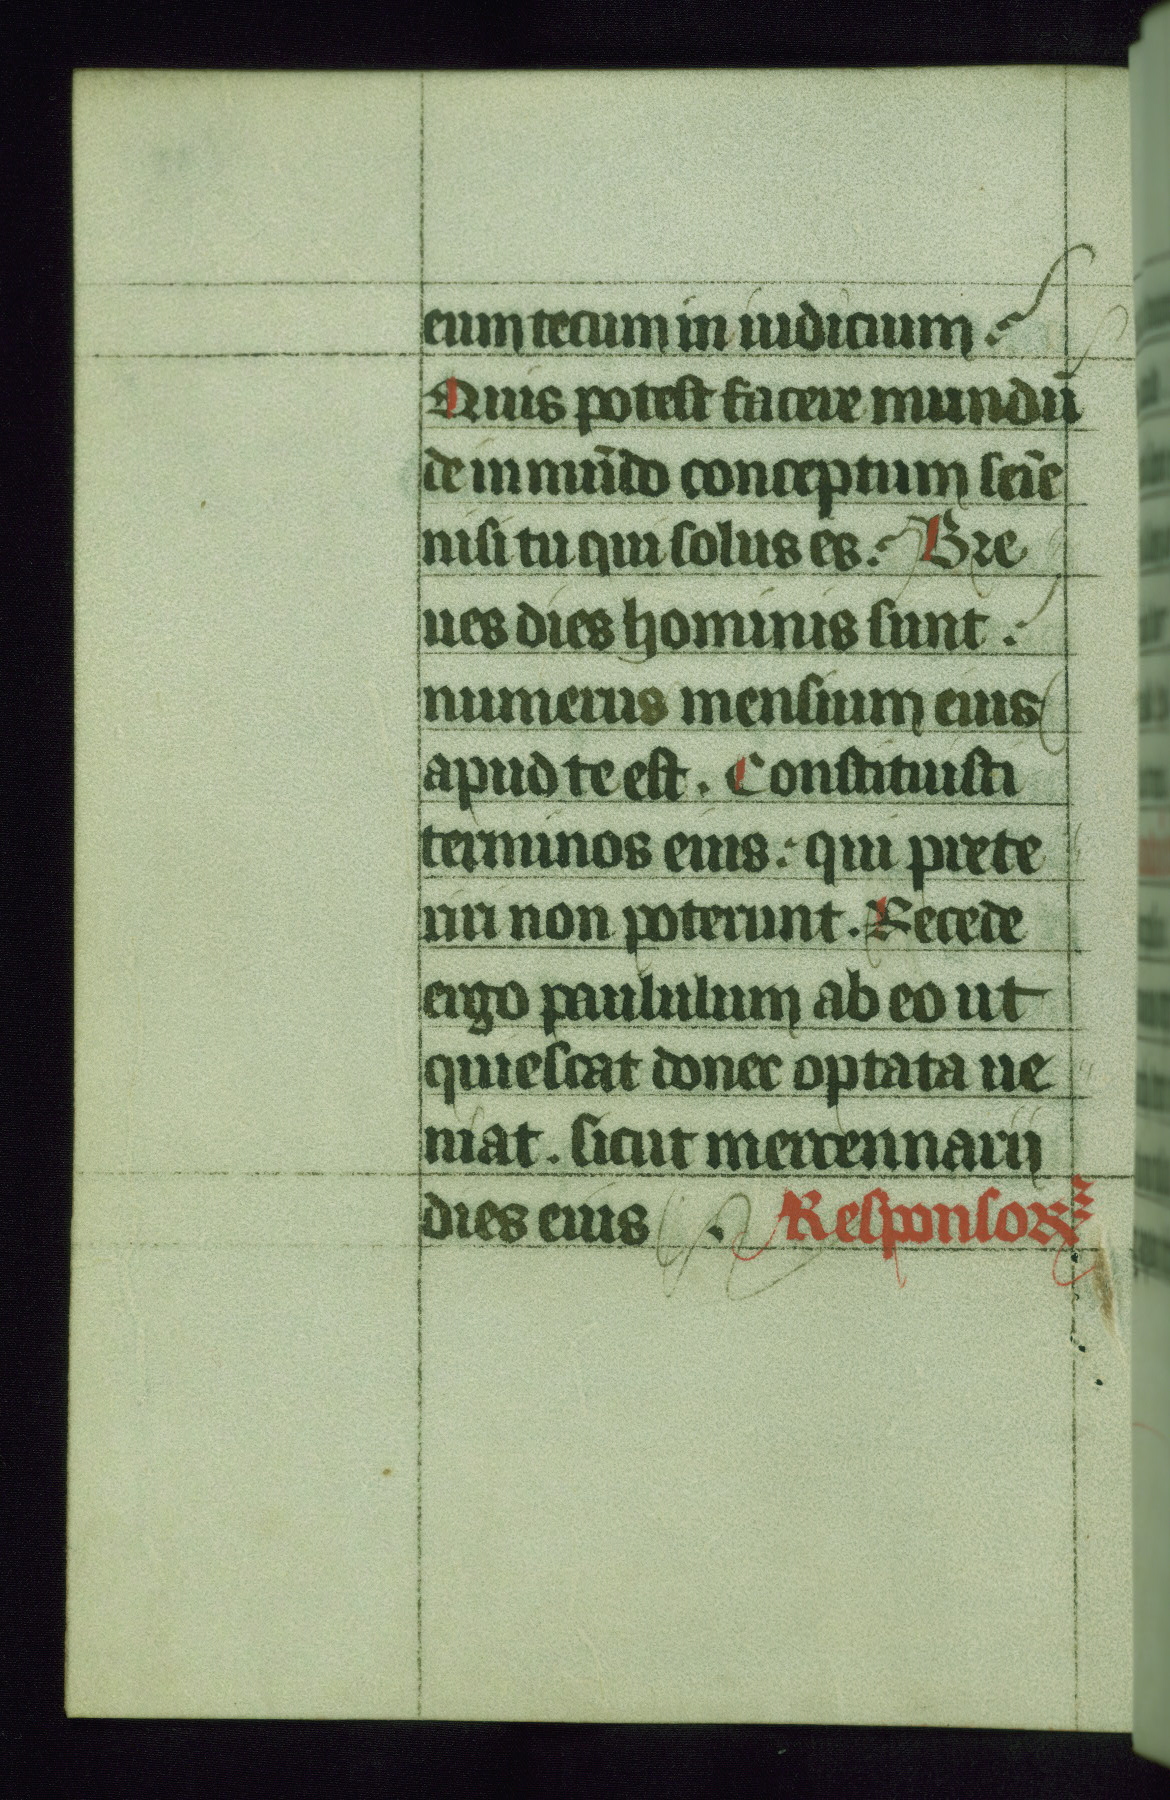 eum tecum in iudicium .
Quis potest facere mundū
de inmūdo conceptum seīe
nisi tu qui solus es . Bre
ues dies hominis sunt .
numerus mensium eius
apud te est . Constituisti
terminos eius . qui prete
riri non poterunt . Recede
ergo paululum ab eo ut
quiescat donec optata ue
niat . sicut mercennarij
dies eius . Responsor